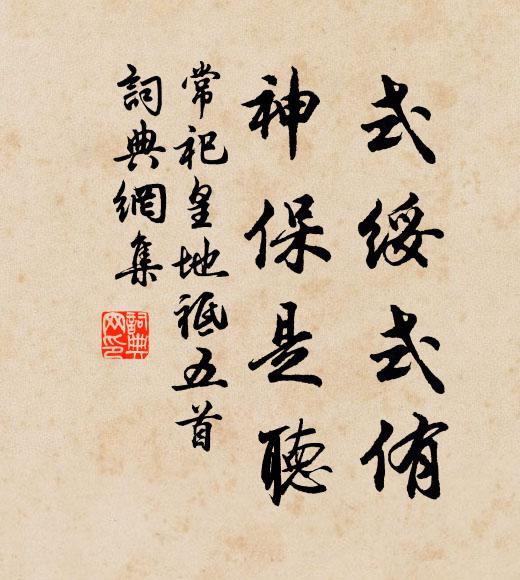 式綏式侑
神保是聽
常祀皇地祇五首
詞典網集
詞典網印